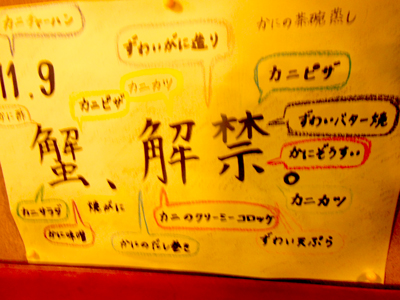 カニチャーハン
ずわいがに造り
かにの茶碗蒸し
11.9
カニピザ
カニカツ
カニピザ
ずわいバター焼
蟹、解禁。
かにぞうすい
カニサラダ
焼がに
カニのクリーミーコロッケ
カニカツ
かに味噌
かにのだし巻き
ずわい天ぷら